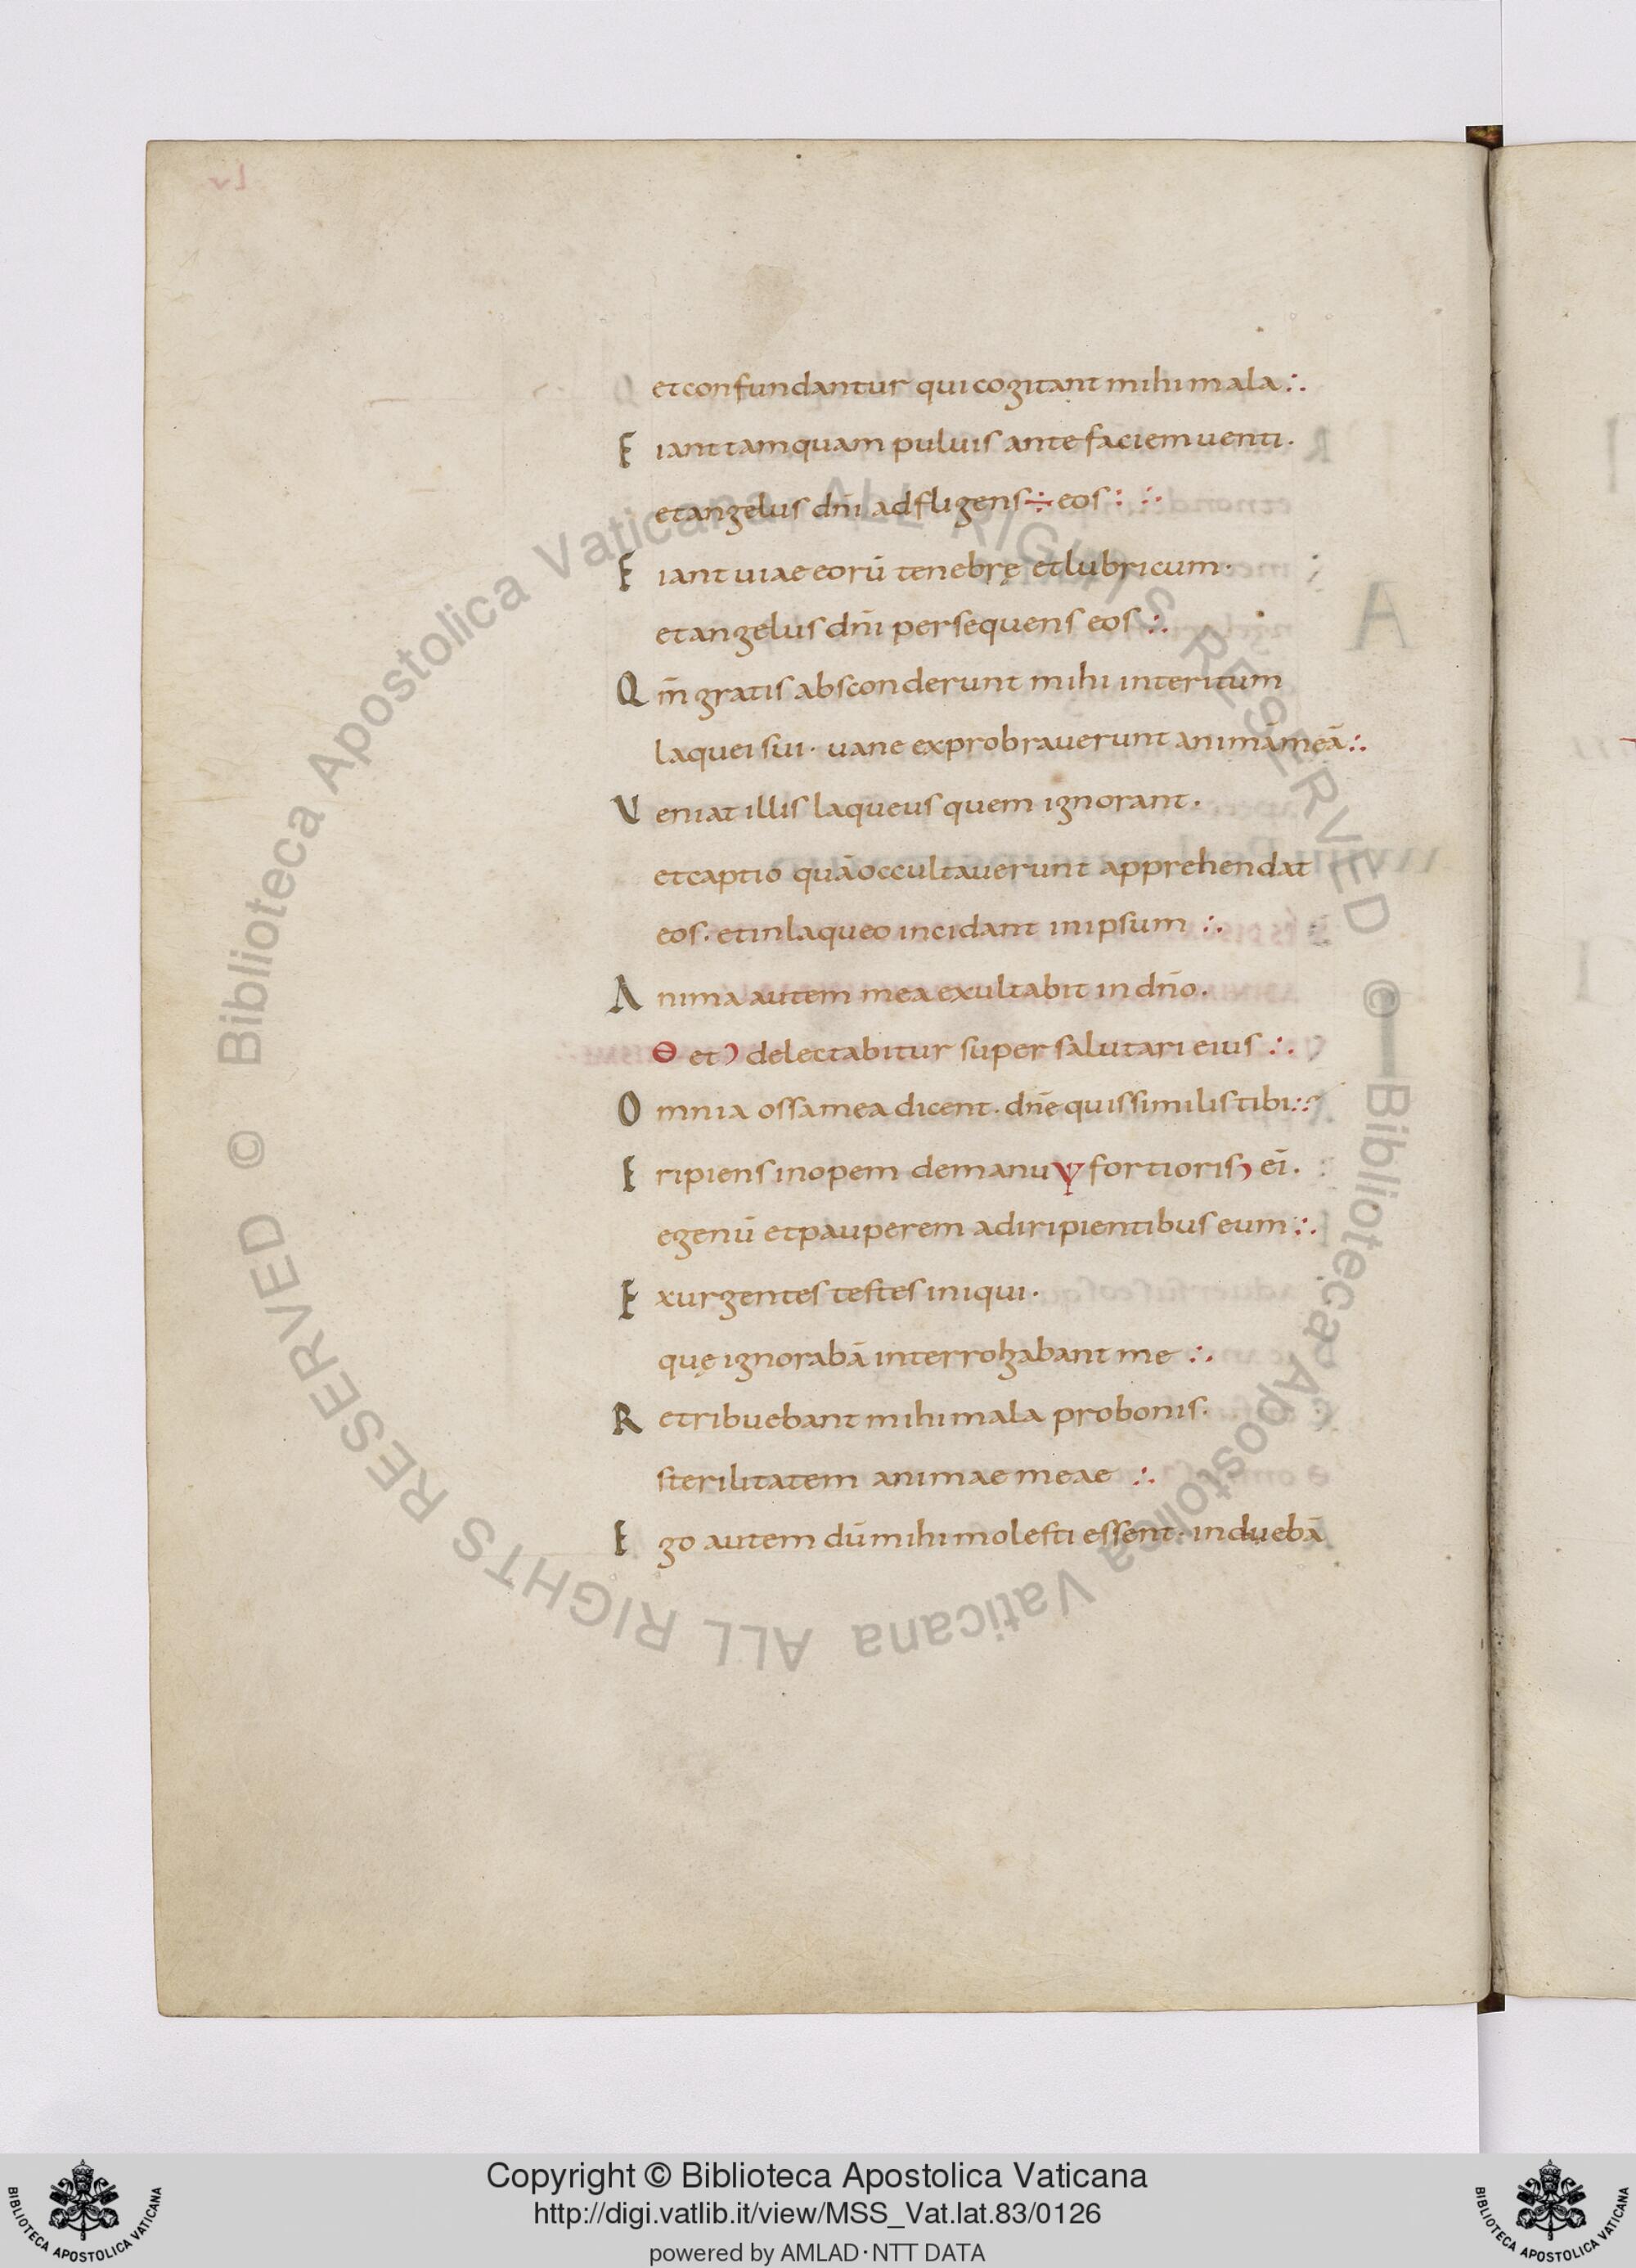 et confundantur qui cogitant mihi mala∴
Fiant tamquam puluis ante faciem uenti·
et angelus dn̄i adfligens ÷ eos : ∴
Fiant uiae eorū tenebrę et lubricum·
et angelus dn̄i persequens eos ∴
Qm̄ gratis absconderunt mihi interitum
laquei sui· uane exprobrauerunt animā meā∴
Veniat illis laqueus quem ignorant·
et captio quā occultauerunt apprehendat
eos· et in laqueo incidant in ipsum ∴
Anima autem mea exultabit in dn̄o·
Θ et Ↄ delectabitur super salutari eius ∴
Omnia ossa mea dicent· dn̄e quis similis tibi∴
Eripiens inopem de manu Ѱ fortioris ↄ ei̅·
egenū et pauperem a diripientibus eum∴
Exurgentes testes iniqui·
quę ignorabā interrogabant me ∴
Retribuebant mihi mala pro bonis·
sterilitatem animae meae ∴
Ego autem dū mihi molesti essent· induebā
Biblioteca Apostolica Vaticana ALL RIGHTS RESERVED ©
Biblioteca Apostolica Vaticana ALL RIGHTS RESERVED ©
Copyright © Biblioteca Apostolica Vaticana
http://digi.vatlib.it/view/MSS_Vat.lat.83/0126
powered by AMLAD·NTT DATA
BIBLIOTECA APOSTOLICA VATICANA
BIBLIOTECA APOSTOLICA VATICANA